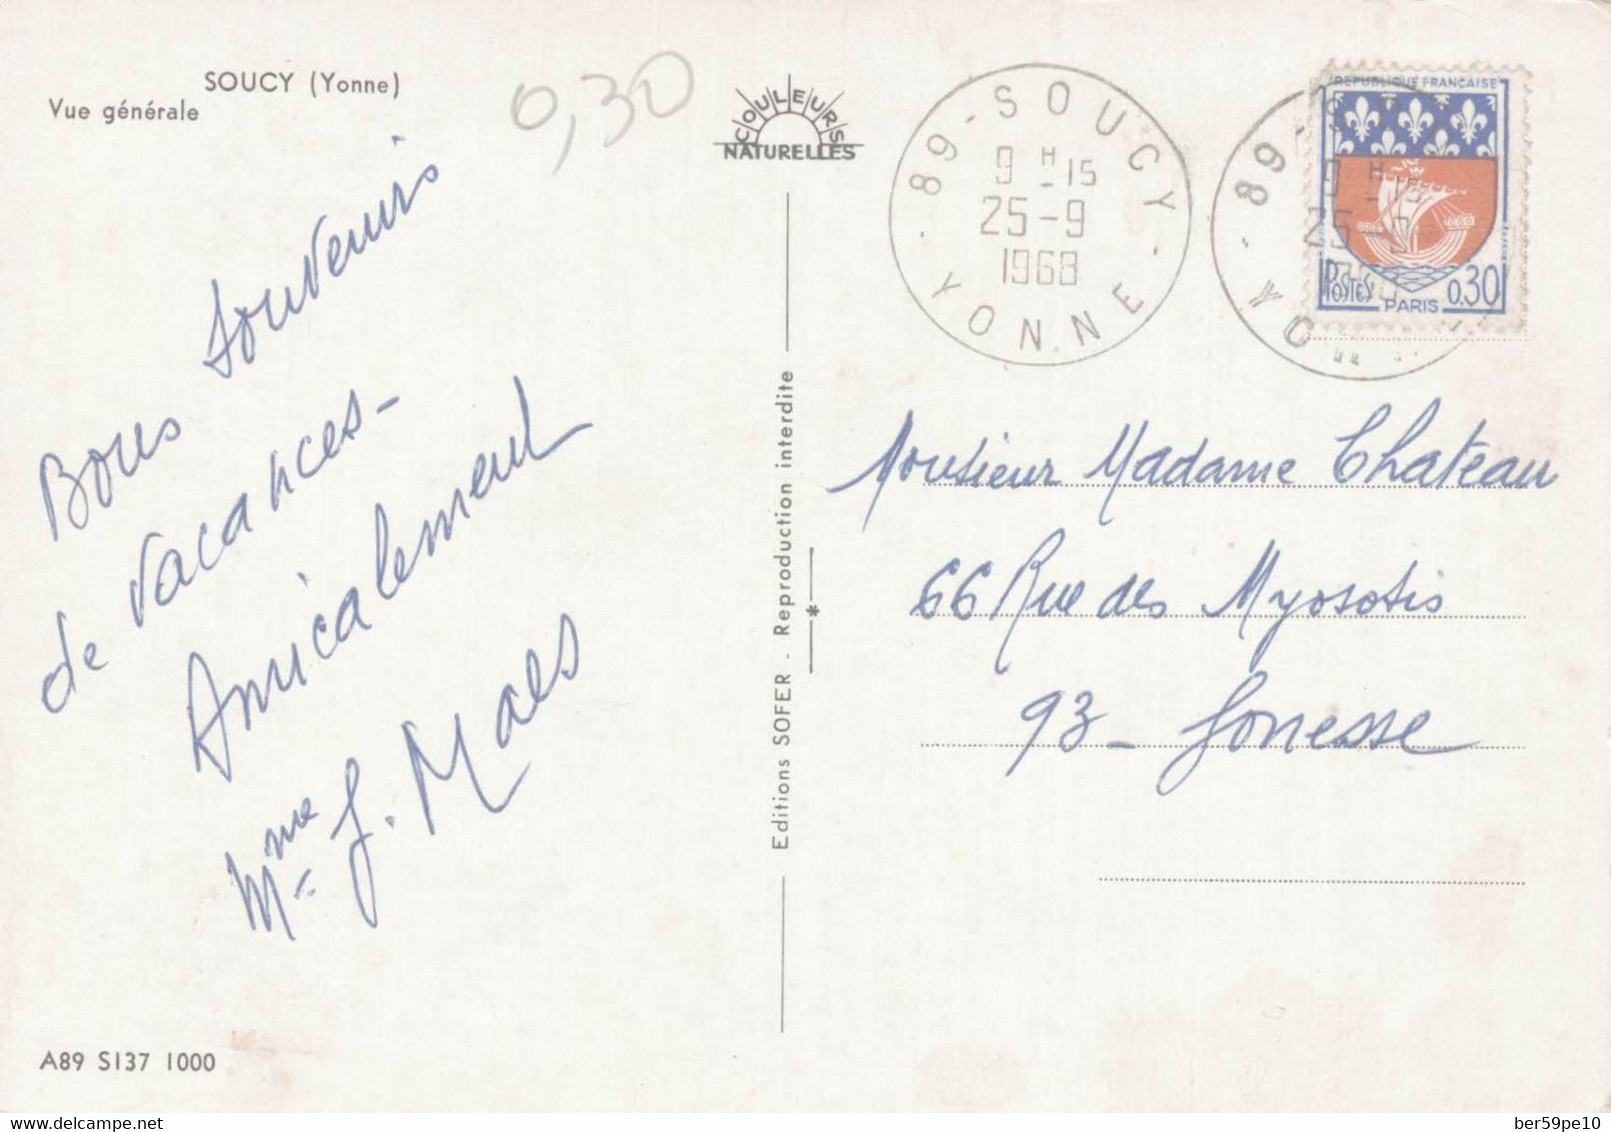 SOUCY (Yonne)
Vue générale
0,30
COULEURS
NATURELLES
89 - SOUCY -
9 H -15
25-9
1968
YONNE
REPUBLIQUE FRANÇAISE
POSTES
PARIS
0,30
89
9 H -15
YO
Bons souvenirs
de vacances -
Amicalement
Mme J. Maes
Editions SOFER - Reproduction interdite
*
Monsieur Madame Chateau
66 Rue des Myosotis
93 - Gonesse
A89 S137 1000
delcampe.net
ber59pe10